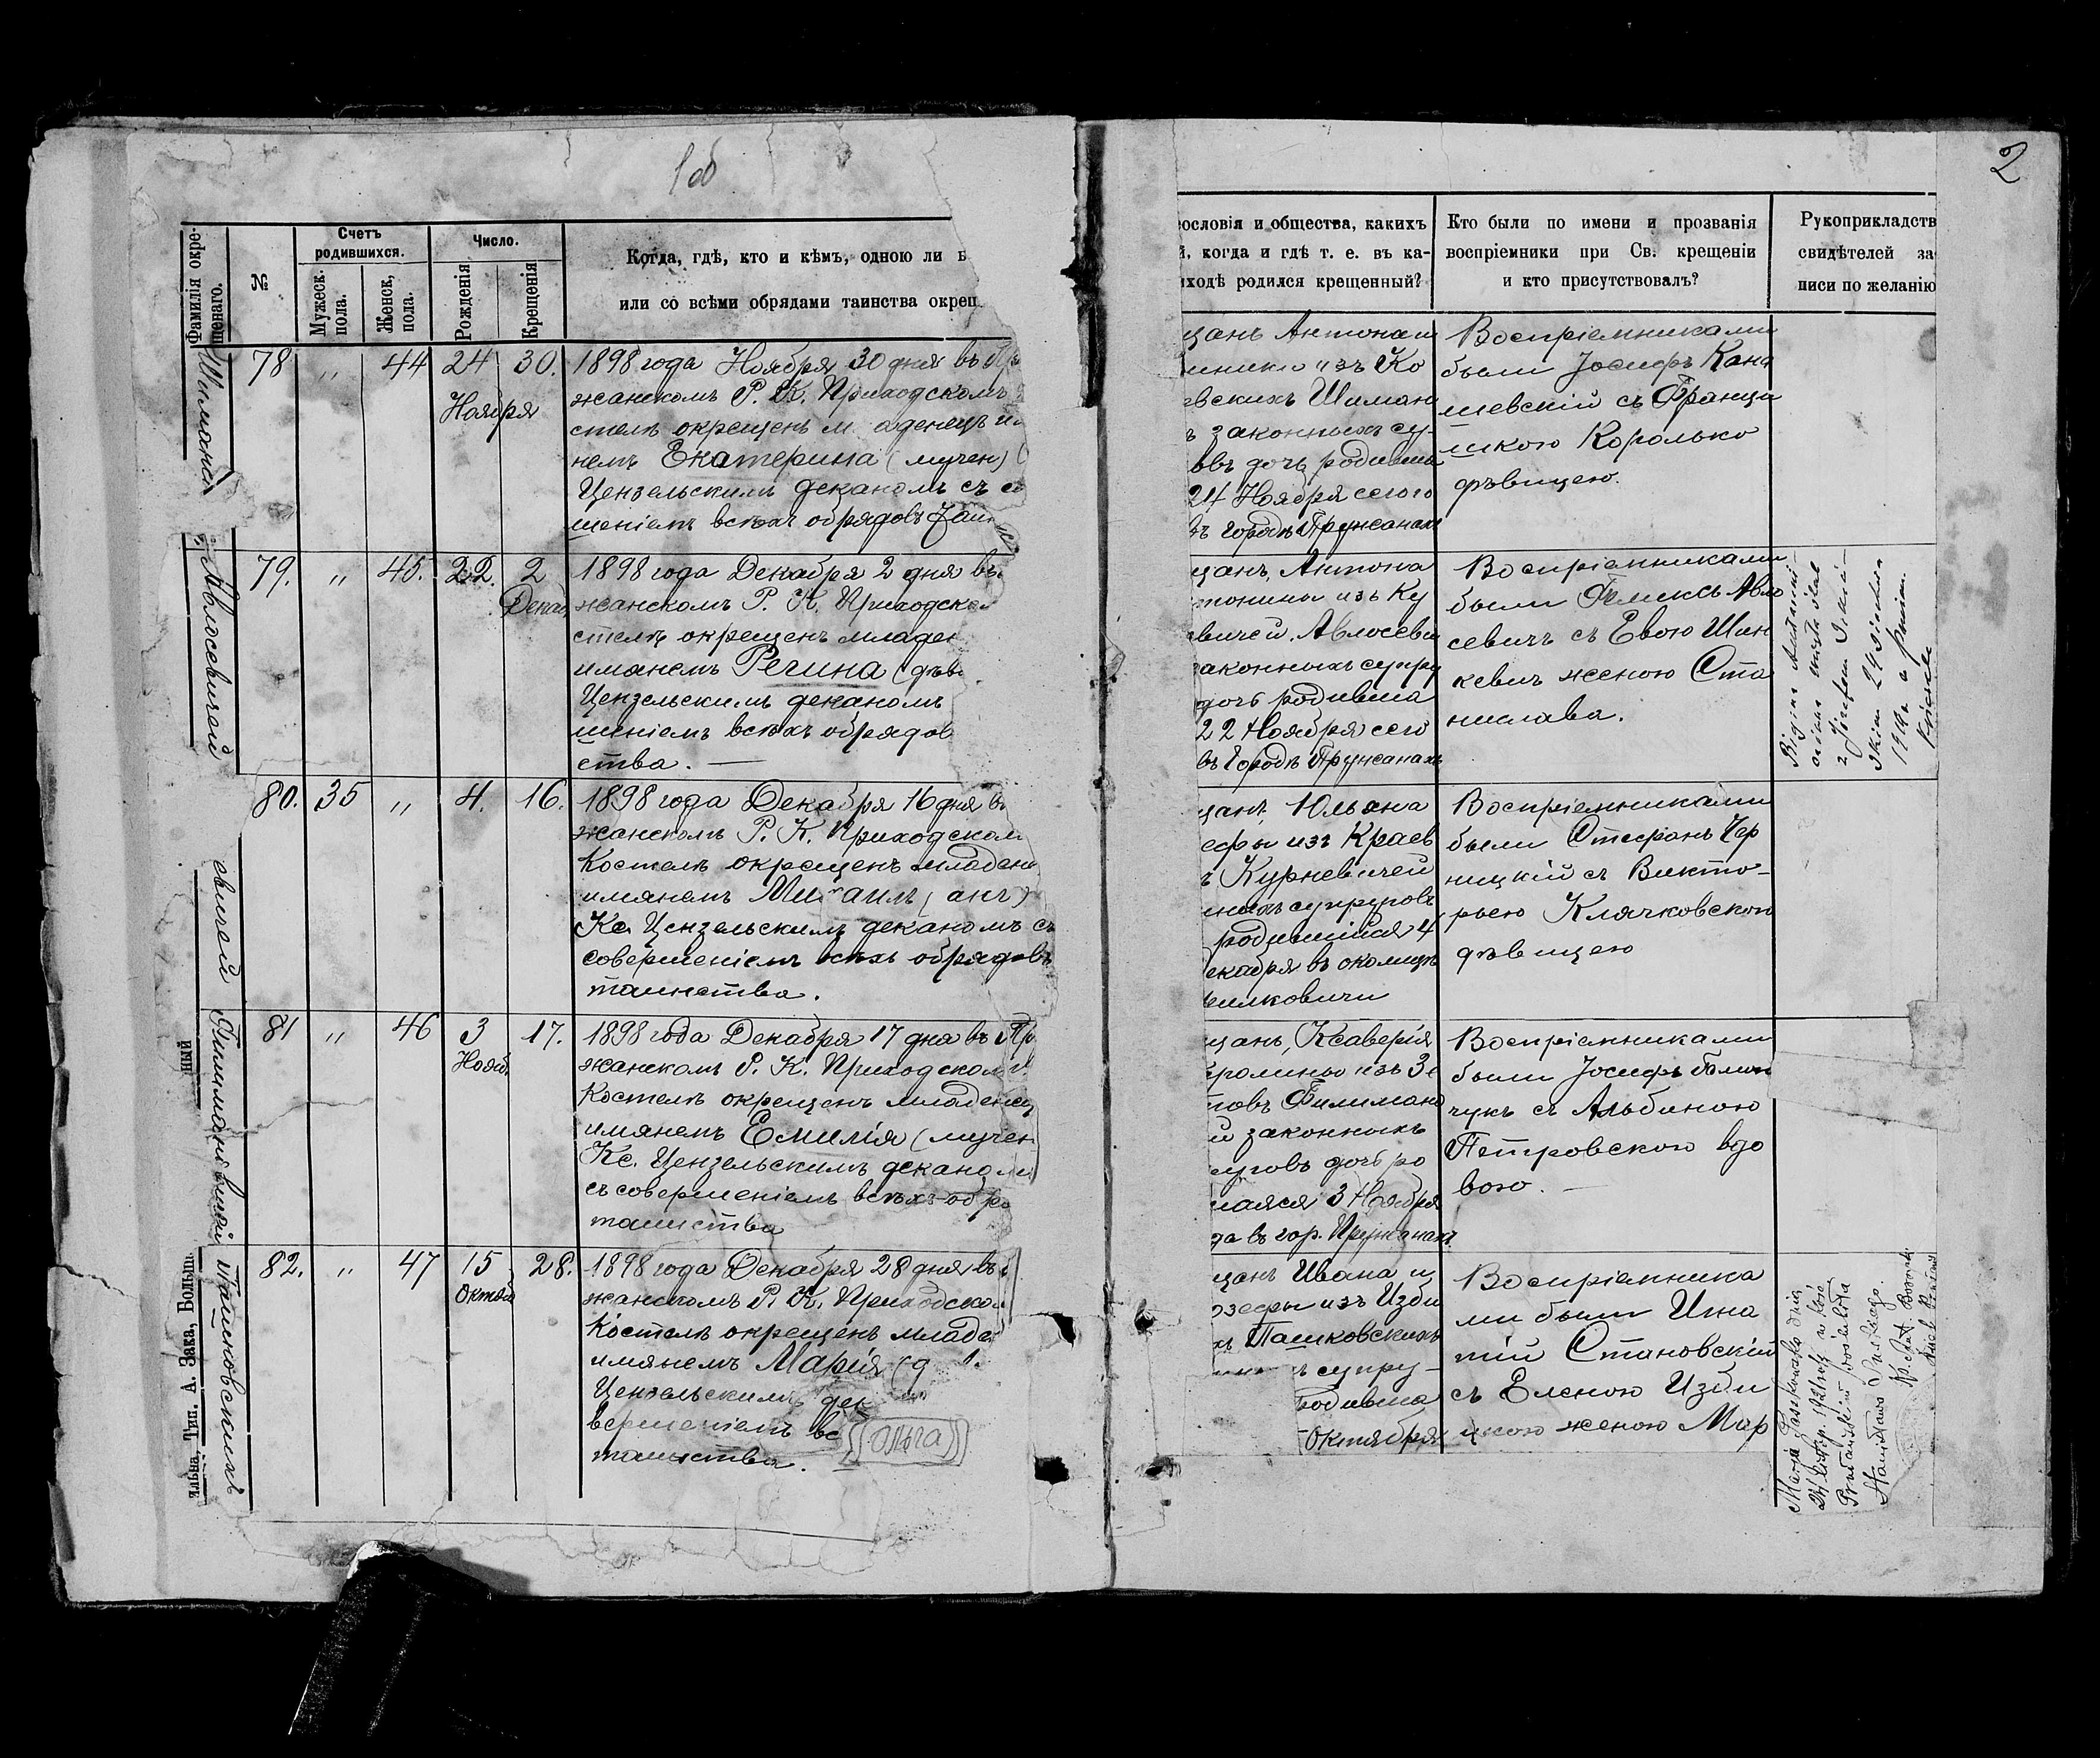 1об
2
Фамилія окре-
щенаго.
№
Счетъ
родившихся.
Мужеск.
пола.
Женск,
пола.
Число.
Рожденія
Крещенія
Когда, гдѣ, кто и кѣмъ, одною ли в
или со всѣми обрядами таинства окрещ
78 „ 44 24 30.
Ноября
1898 года Ноября 30 дня въ Пр
жанскомъ Р. К. Приходскомъ
стелѣ окрещенъ м аденецъ и
немъ Екатерина (мучен) (
Цензельскимъ деканомъ съ со
шеніемъ всѣхъ обрядовъ Таин
Авлосевичей
79. „ 45. 22. 2
Декаб
1898 года Декабря 2 дня въ
жанскомъ Р. К. Приходско
стелѣ окрещенъ младен
имянемъ Регина (дѣв
Цензельскимъ деканомъ
шеніемъ всѣхъ обрядов
ства. —
свичей
80. 35 „ 4. 16.
1898 года Декабря 16 дня в
жанскомъ Р. К. Приходском
Костелѣ окрещенъ младен
имянемъ Михаилъ (анг)
Кс. Цензельскимъ деканомъ съ
совершеніемъ всѣхъ обрядовъ
таинства.
ный
81 „ 46 3 17.
Нояб.
1898 года Декабря 17 дня въ Пр
жанскомъ Р. К. Приходском
Костелѣ окрещенъ младенец
имянемъ Емилія (мучен
Кс. Цензельскимъ деканом
съ совершеніемъ всѣхъ обря
таинства
Пашковскихъ
ильна, Тип. А. Зака, Больш
82. „ 47 15 28.
Октяб
1898 года Декабря 28 дня въ
жанскомъ Р. К. Приходском
Костелѣ окрещенъ младе
имянемъ Марія (д
Цензельскимъ дек
вершеніемъ вс
таинства.
(Ольга)
ословія и общества, какихъ
й, когда и гдѣ т. е. въ ка-
иходѣ родился крещенный?
Кто были по имени и прозванія
воспріемники при Св. крещеніи
и кто присутствовалъ?
Рукоприкладств
свидѣтелей за
писи по желанію
щанъ Антона и
нины изъ Ко
евскихъ Шиман
ъ законныхъ су-
овъ дочь родивша
24 Ноября сего го
въ городѣ Пружанах
Воспріемниками
были Іосифъ Кана
шевскій съ Франци
шкою Королько
дѣвицею.
щанъ, Антона
тонины изъ Ку
вичей Авлосеви
законныхъ супру
дочь родивша
22 Ноября сего
въ городѣ Пружанахъ
Воспріемниками
были Феликсъ Авло
севичъ съ Евою Шин
кевичъ женою Ста
нислава.
щанъ, Юльяна
ефы изъ Краев
ъ Курневичей
нныхъ супруговъ
родившійся 4
екабря въ околицѣ
илковичи
Воспріемниками
были Стефанъ Чер
ницкій съ Викто-
ріею Клячковскою
дѣвицею
щанъ, Ксаверія
ролины изъ Зе
повъ Филимано
й законныхъ
руговъ дочь ро
шаяся 3 Ноября
да въ гор. Пружанах
Воспріемниками
были Іосифъ
чукъ съ Альбиною
Петровскою вдо
вою. —
щанъ Ивана и
озефы изъ Изби
хъ Пашковскихъ
ъ супру-
родивша
Октября
Воспріемника
ми были Игна
тій Становскій
съ Еленою Изби
цкою женою Мар